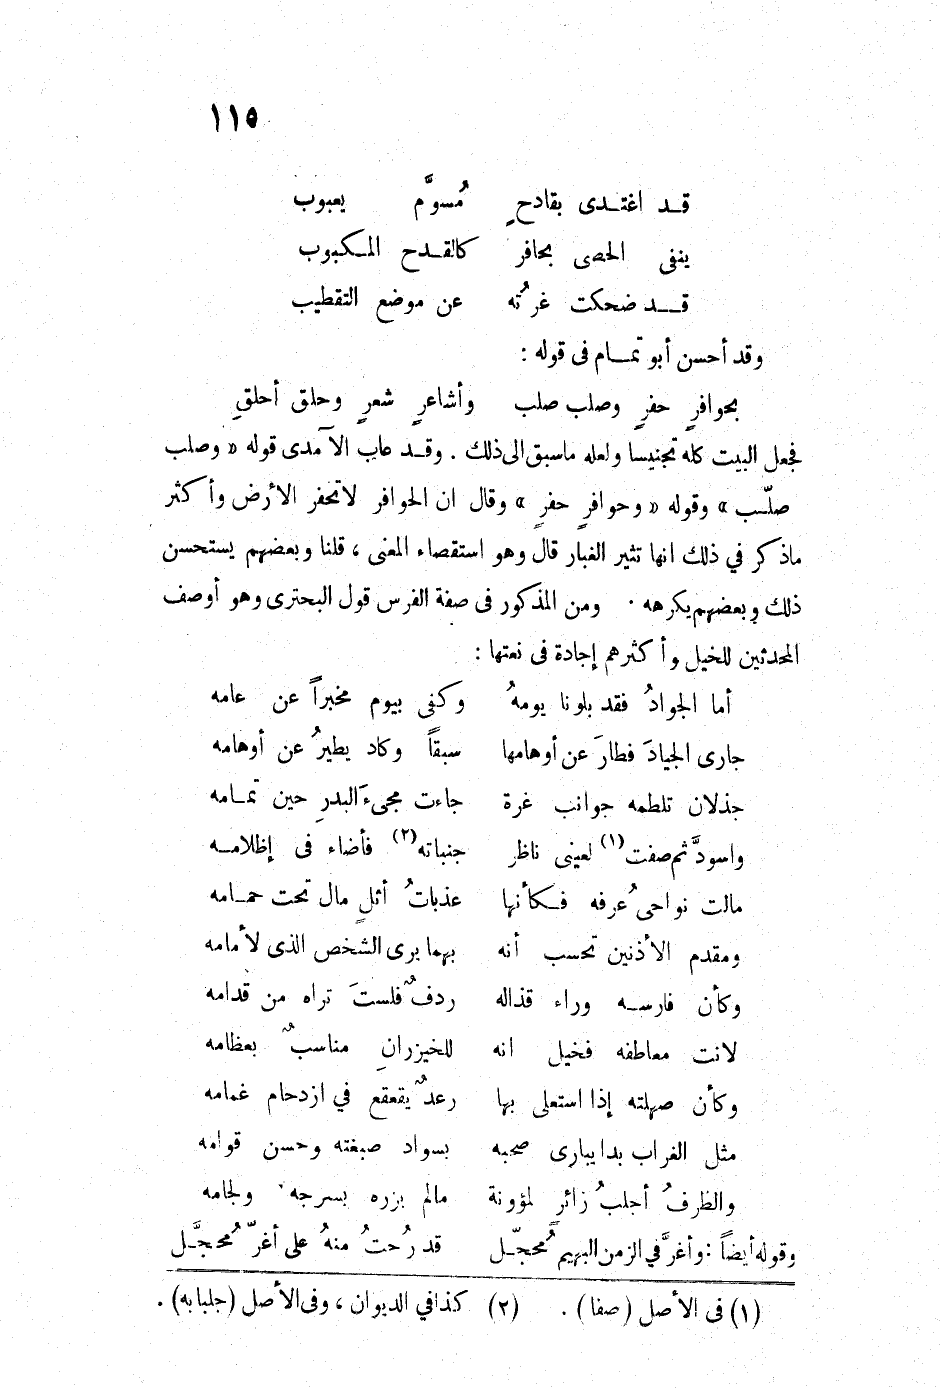 ١١٥
قـد اغتـدى بقادحٍ مُسوَّم يعبوب
ينفى الحصى بحافر كالقـدح المـكبوب
قــد ضحكت غرُته عن موضع التقطيب
وقد أحسن أبو تمـام فى قوله :
بحوافرٍ حفرٍ وصلب صلب وأشاعرٍ شعرٍ وحلق أحلقِ
فجعل البيت كله تجنيسا ولعله ماسبق الى ذلك . وقـد عاب الآمدى قوله « وصلب
صلّـب » وقوله « وحوافرٍ حفرٍ » وقال ان الحوافر لاتحفر الأرض وأكثر
ماذكر في ذلك انها تثير الغبار قال وهو استقصاء المعنى ، قلنا وبعضهم يستحسن
ذلك وبعضهم يكرهه . ومن المذكور فى صفة الفرس قول البحترى وهو أوصف
المحدثين للخيل وأكثرهم إجادة فى نعتها :
أما الجوادُ فقد بلونا يومهُ وكفى بيوم مخبراً عن عامه
جارى الجيادَ فطارَ عن أوهامها سبقاً وكاد يطيرُ عن أوهامه
جذلان تلطمه جوانب غرة جاءت مجىءَ البدرِ حين تمـامه
واسودَّ ثم صفت(١) لعينى ناظر جنباته(٢) فأضاء فى إظلامـه
مالت نواحى عُرفه فـكأنها عذباتُ أثلٍ مال تحت حمـامه
ومقدم الأذنين تحسب أنه بهما يرى الشخص الذى لأمامه
وكأن فارسـه وراء قذاله ردفٌ فلستَ تراه من قدامه
لانت معاطفه فخيل انه للخيزرانِ مناسبٌ بعظامه
وكأن صهلته إذا استعلى بها رعدٌ يقعقع في ازدحام غمامه
مثل الغراب بدا يبارى صحبه بسواد صبغته وحسن قوامه
والطرفُ أجلبُ زائرٍ لمؤونة مالم يزره بسرجه ولجامه
وقوله أيضاً : وأغرَّ في الزمن البهيم مُحجّـل قد رُحتُ منهُ على أغرّ مُحجـَّل
(١) فى الأصل (صفا) . (٢) كذا في الديوان ، وفى الأصل (جلبابه) .